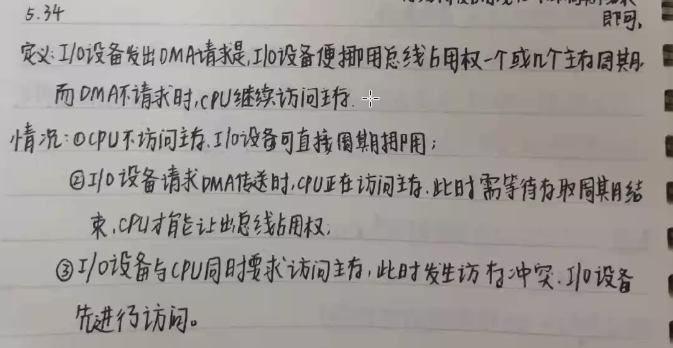 5.34
即可。
定义：I/O设备发出DMA请求是，I/O设备便挪用总线占用权一个或几个主存周期，
而DMA不请求时，CPU继续访问主存.
情况：①CPU不访问主存、I/O设备可直接周期挪用；
②I/O设备请求DMA传送时，CPU正在访问主存.此时需等待存取周期结
束，CPU才能让出总线占用权.
③I/O设备与CPU同时要求访问主存，此时发生访存冲突.I/O设备
先进行访问。